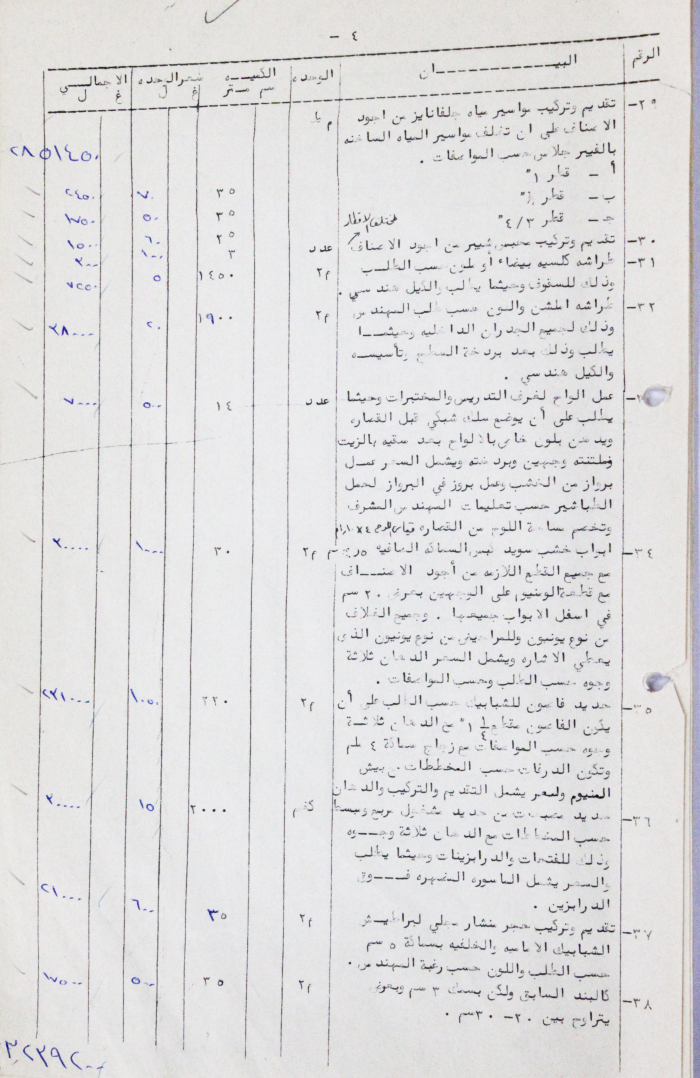 - ٤
الرقم البيـــــان الوحده الكميه سعر الوحده الاجمالي
سم متر غ ل غ ل
٢٨٥١٤٥٠
٢٩- تقديم وتركيب مواسير مياه جلفانايز من اجود م ط
الاصناف على ان تغلف مواسير المياه الساخنه
بالفيبر جلاس حسب المواصفات .
أ - قطر ١" ٣٥ ٧٠ ٢٤٥٠
ب- قطر ٣٥ ٥٠ ١٧٥٠
جـ- قطر ٣/٤" ٢٥ ٦٠ ١٥٠٠
٣٠- تقديم وتركيب محبس شيبر من اجود الاصناف مختلف الاقطار عدد ٣ ١٠٠ ٣٠٠
٣١- طراشه كلسيه بيضاء أو لمون حسب الطلب م٢ ١٤٥٠ ٥ ٧٢٥٠
وذلك للسقوف وحيثما يطلب والكيل هندسي .
٣٢- طراشه املشن واللون حسب طلب المهندس م٢ ١٩٠٠ ٢٠ ٣٨٠٠٠
وذلك لجميع الجدران الداخليه وحيثما
يطلب وذلك بعد بردخة السطح وتأسيسه
والكيل هندسي .
عمل الواح لغرف التدريس والمختبرات وحيثما عدد ١٤ ٥٠٠ ٧٠٠٠
يطلب على أن يوضع سلك شبكي قبل القصاره
ويدهن بلون خاص بالالواح بعد سقيه بالزيت
وجهين وبردخته ويشمل السعر عمل
برواز من الخشب وعمل بروز في البرواز لحمل
الطباشير حسب تعليمات المهندس المشرف
وتخصم مساحة اللوح من القصاره
٣٤- ابواب خشب سويد كبس السماكه الصافيه سم م٢ ٣٠ ١٠٠٠ ٣٠٠٠٠
مع جميع القطع اللازمه من أجود الاصناف
مع قطعة الومنيوم على الوجهين بعرض ٢٠ سم
في اسفل الابواب جميعها . وجميع الغلاقات
من نوع يونيون وللمراحيض من نوع يونيون الذى
يعطي الاشاره ويشمل السعر الدهان ثلاثة
وجوه حسب الطلب وحسب المواصفات .
٣٥- حديد فاصون للشبابيك حسب الطلب على أن م٢ ٢٢٠ ١٠٥٠ ٢٣١٠٠٠
يكون الفاصون مقطع ١" مع الدهان ثلاثة
وجوه حسب المواصفات مع زجاج سماكة ٤ ملم
وتكون الدرفات حسب المخططات
المنيوم والسعر يشمل التقديم والتركيب والدهان
٣٦- حديد حمايات من حديد مشغول مربع ومبسط كغم ٢٠٠٠ ١٥ ٣٠٠٠٠
حسب المخططات مع الدهان ثلاثة وجوه
وذلك للفتحات والدرابزينات وحيثما يطلب
والسعر يشمل الماسوره فوق
الدرابزين .
٣٧- تقديم وتركيب حجر منشار مجلي لبراطيش م٢ ٣٥ ٦٠٠ ٢١٠٠٠
الشبابيك الاماميه والخلفيه بسماكة ٥ سم
حسب الطلب واللون حسب رغبة المهندس .
٣٨- كالبند السابق ولكن بسمك ٣ سم وبعرض م٢ ٣٥ ٥٠٠ ١٧٥٠٠
يتراوح بين ٢٠ - ٣٠ سم .
٣٢٣٩٢٠٠